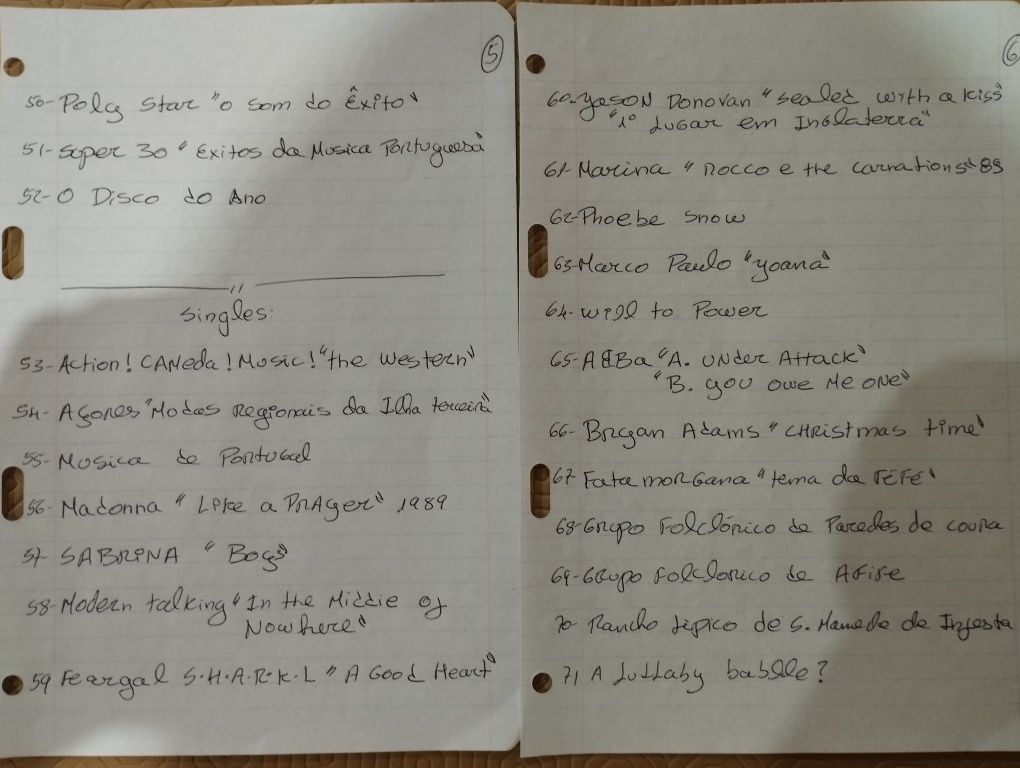 5
50-Poly Star "o som do Êxito"
51-Super 30 "Exitos da Musica Portuguesa"
52-O Disco do Ano
"
Singles:
53-Action! CAMeda! Music! "the western"
54-Açores "Modas Regionais da Ilha terceira"
55-Musica de Portugal
56-Madonna "Like a PrAyer" 1989
57 SABRINA "Boys"
58-Modern talking "In the Middle of
Nowhere"
59 Feargal S.H.A.R.K.L "A Good Heart"
6
60-yason Donovan "sealed with a kiss"
"1º Lugar em Inglaterra"
61-Marina "Rocco e the carnations" 89
62-Phoebe Snow
63-Marco Paulo "yoana"
64-will to Power
65-ABBa "A. UNder Attack"
"B. you owe Me one"
66-Bryan Adams "CHRistmas time"
67-Fata morGana "tema da FÉFÉ"
68-Grupo Folclórico de Paredes de coura
69-Grupo Folclorico de AFife
70-Rancho tipico de S. Mamede de Infesta
71 A Lullaby babble?